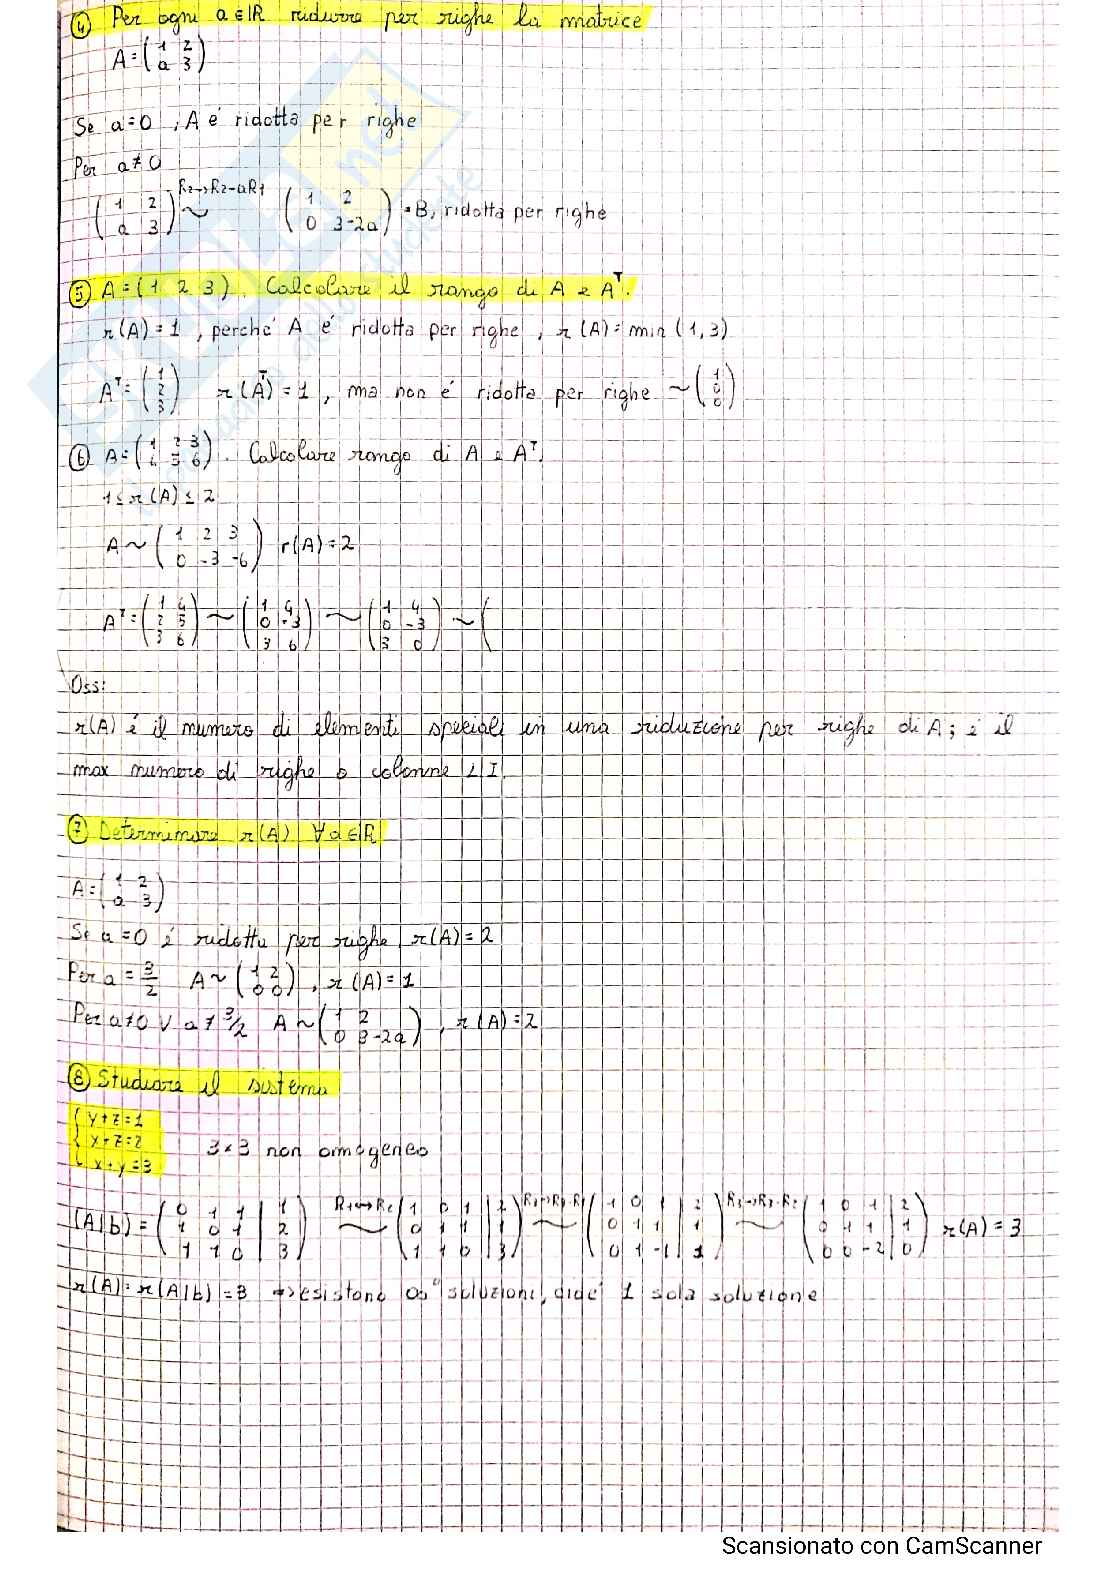 ④ Per ogni a ∈ ℝ ridurre per righe la matrice
A = (1 2; a 3)
Se a=0, A é ridotta per righe
Per a ≠ 0
(1 2; a 3) R2→R2-aR1 ~ (1 2; 0 3-2a) = B, ridotta per righe
⑤ A = (1 2 3). Calcolare il rango di A e Aᵀ.
r(A) = 1, perché A é ridotta per righe, r(A) = min (1,3)
Aᵀ = (1; 2; 3) r(Aᵀ) = 1, ma non é ridotta per righe ~ (1; 0; 0)
⑥ A = (1 2 3; 4 5 6). Calcolare rango di A e Aᵀ.
1 ≤ r(A) ≤ 2
A ~ (1 2 3; 0 -3 -6) r(A) = 2
Aᵀ = (1 4; 2 5; 3 6) ~ (1 4; 0 -3; 3 6) ~ (1 4; 0 -3; 3 0) ~ (
Oss:
r(A) é il numero di elementi speciali in una riduzione per righe di A; é il
max numero di righe o colonne LI.
⑦ Determinare r(A) ∀a∈ℝ
A = (1 2; a 3)
Se a=0 é ridotta per righe, r(A) = 2
Per a = 3/2 A ~ (1 2; 0 0), r(A) = 1
Per a≠0 ∨ a≠3/2 A ~ (1 2; 0 3-2a), r(A) = 2
⑧ Studiare il sistema
{ y+z=1
x+z=2
x+y=3
3×3 non omogeneo
(A|b) = (0 1 1 | 1; 1 0 1 | 2; 1 1 0 | 3) R1↔R2 ~ (1 0 1 | 2; 0 1 1 | 1; 1 1 0 | 3) R3→R3-R1 ~ (1 0 1 | 2; 0 1 1 | 1; 0 1 -1 | 1) R3→R3-R2 ~ (1 0 1 | 2; 0 1 1 | 1; 0 0 -2 | 0) r(A) = 3
r(A) = r(A|b) = 3 ⇒ esistono ∞⁰ soluzioni, cioé 1 sola soluzione
Scansionato con CamScanner